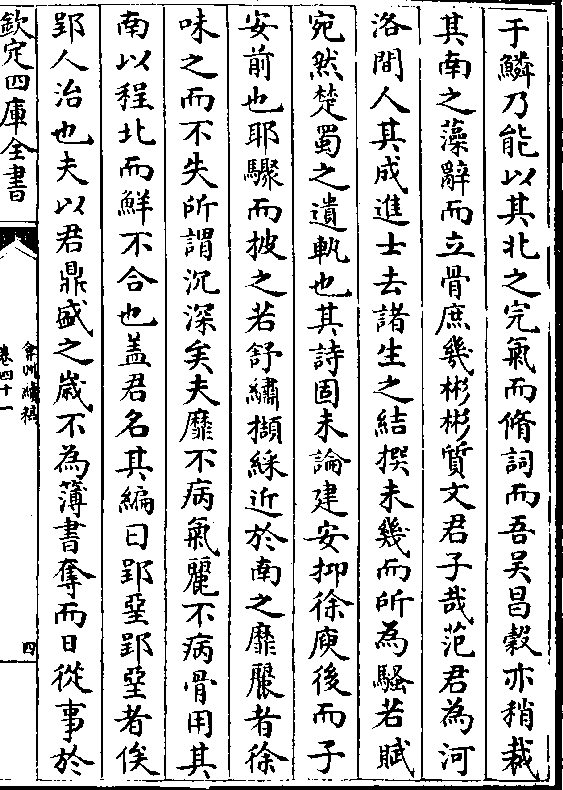 于鱗乃能以其北之完氣而脩詞而吾吴昌榖亦稍裁
其南之藻辭而立骨庶幾彬彬質文君子哉范君為河
洛間人其成進士去諸生之結撰未幾而所為騷若賦
宛然楚蜀之遺軌也其詩固未論建安抑徐庾後而子
安前也耶驟而披之若舒繡擷綵近於南之靡麗者徐
味之而不失所謂沉深矣夫靡不病氣麗不病骨用其
南以程北而鮮不合也盖君名其編曰郢堊郢堊者俟
郢人治也夫以君鼎盛之歳不為簿書奪而日從事於
欽定四庫全書
弇州續稿
卷四十一
四